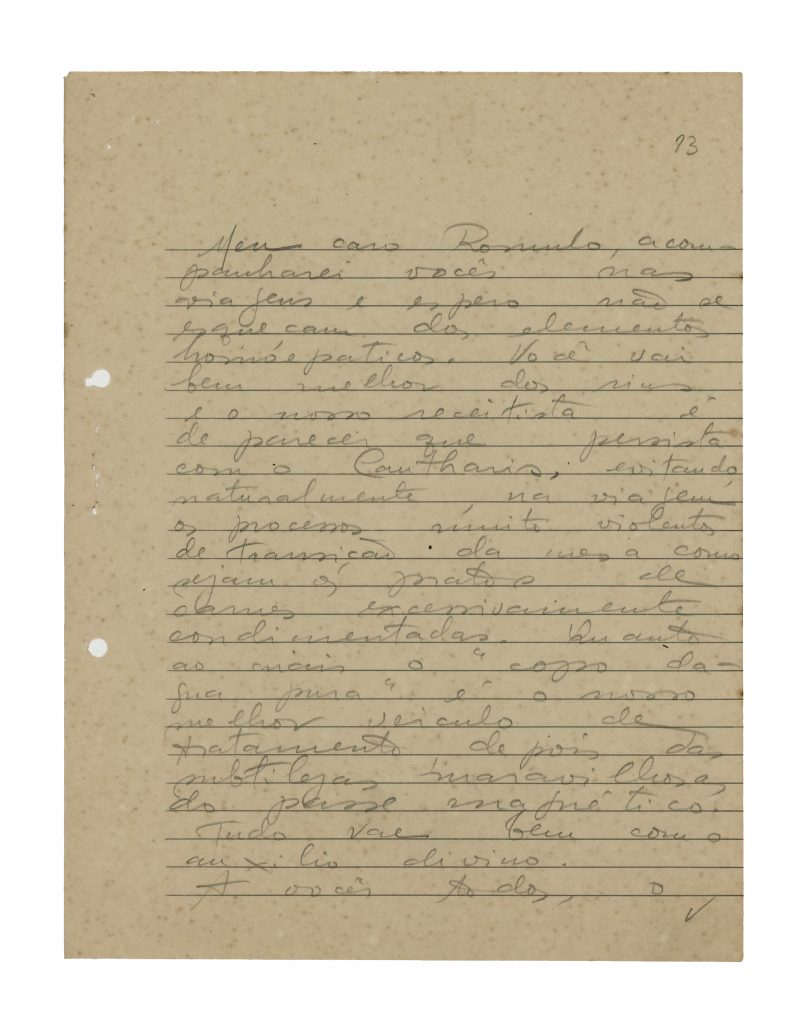 13
Meu caro Romulo, acom-
panharei vocês nas
viagens e espero não se
esqueçam dos elementos
homóepaticos. Você vai
bem melhor dos rins
e o nosso receitista é
de parecer que persista
com o Cantharis, evitando
naturalmente, na viagem,
os processos muito violentos
de transição da mesa como
sejam os pratos de
carnes excessivamente
condimentadas. Quanto
ao mais o "copo da-
gua pura" é o nosso
melhor veiculo de
tratamento depois das
subtilezas maravilhosas
do passe magnético.
Tudo vae bem com o
auxilio divino.
A vocês todos, o